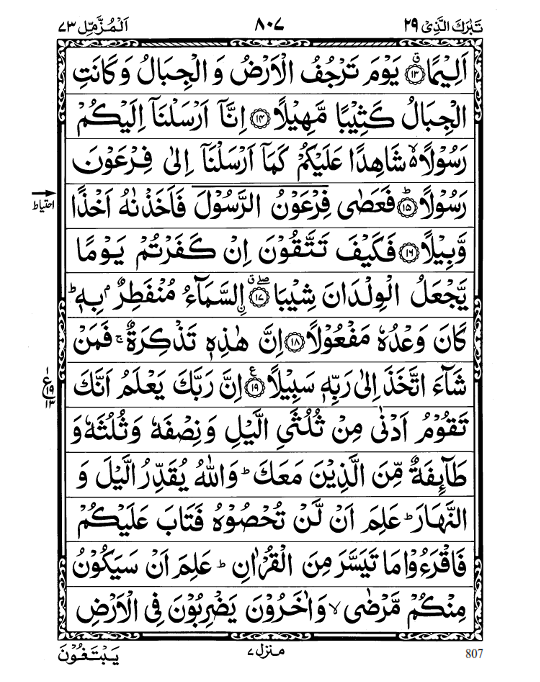 تَبٰرَكَ الَّذِىْ ٢٩ ٨٠٧ اَلْمُزَّمِّل ٧٣
اَلِيْمًا ۙ﴿۱۳﴾ يَوْمَ تَرْجُفُ الْاَرْضُ وَ الْجِبَالُ وَ كَانَتِ
الْجِبَالُ كَثِيْبًا مَّهِيْلًا ﴿۱۴﴾ اِنَّاۤ اَرْسَلْنَاۤ اِلَيْكُمْ
رَسُوْلًا ۙ۬ شَاهِدًا عَلَيْكُمْ كَمَاۤ اَرْسَلْنَاۤ اِلٰى فِرْعَوْنَ
رَسُوْلًا ؕ﴿۱۵﴾ فَعَصٰى فِرْعَوْنُ الرَّسُوْلَ فَاَخَذْنٰهُ اَخْذًا
احتیاط
وَّبِيْلًا ﴿۱۶﴾ فَكَيْفَ تَتَّقُوْنَ اِنْ كَفَرْتُمْ يَوْمًا
يَّجْعَلُ الْوِلْدَانَ شِيْبَا ۗۖ﴿۱۷﴾ اۨلسَّمَآءُ مُنْفَطِرٌۢ بِهٖ ؕ
كَانَ وَعْدُهٗ مَفْعُوْلًا ﴿۱۸﴾ اِنَّ هٰذِهٖ تَذْكِرَةٌ ۚ فَمَنْ
شَآءَ اتَّخَذَ اِلٰى رَبِّهٖ سَبِيْلًا ﴿۱۹﴾ اِنَّ رَبَّكَ يَعْلَمُ اَنَّكَ
ع ١٩ ١٣
تَقُوْمُ اَدْنٰى مِنْ ثُلُثَىِ الَّيْلِ وَ نِصْفَهٗ وَ ثُلُثَهٗ وَ
طَآئِفَةٌ مِّنَ الَّذِيْنَ مَعَكَ ؕ وَ اللّٰهُ يُقَدِّرُ الَّيْلَ وَ
النَّهَارَ ؕ عَلِمَ اَنْ لَّنْ تُحْصُوْهُ فَتَابَ عَلَيْكُمْ
فَاقْرَءُوْا مَا تَيَسَّرَ مِنَ الْقُرْاٰنِ ؕ عَلِمَ اَنْ سَيَكُوْنُ
مِنْكُمْ مَّرْضٰى ۙ وَ اٰخَرُوْنَ يَضْرِبُوْنَ فِى الْاَرْضِ
807 منزل ٧ يَبْتَغُوْنَ